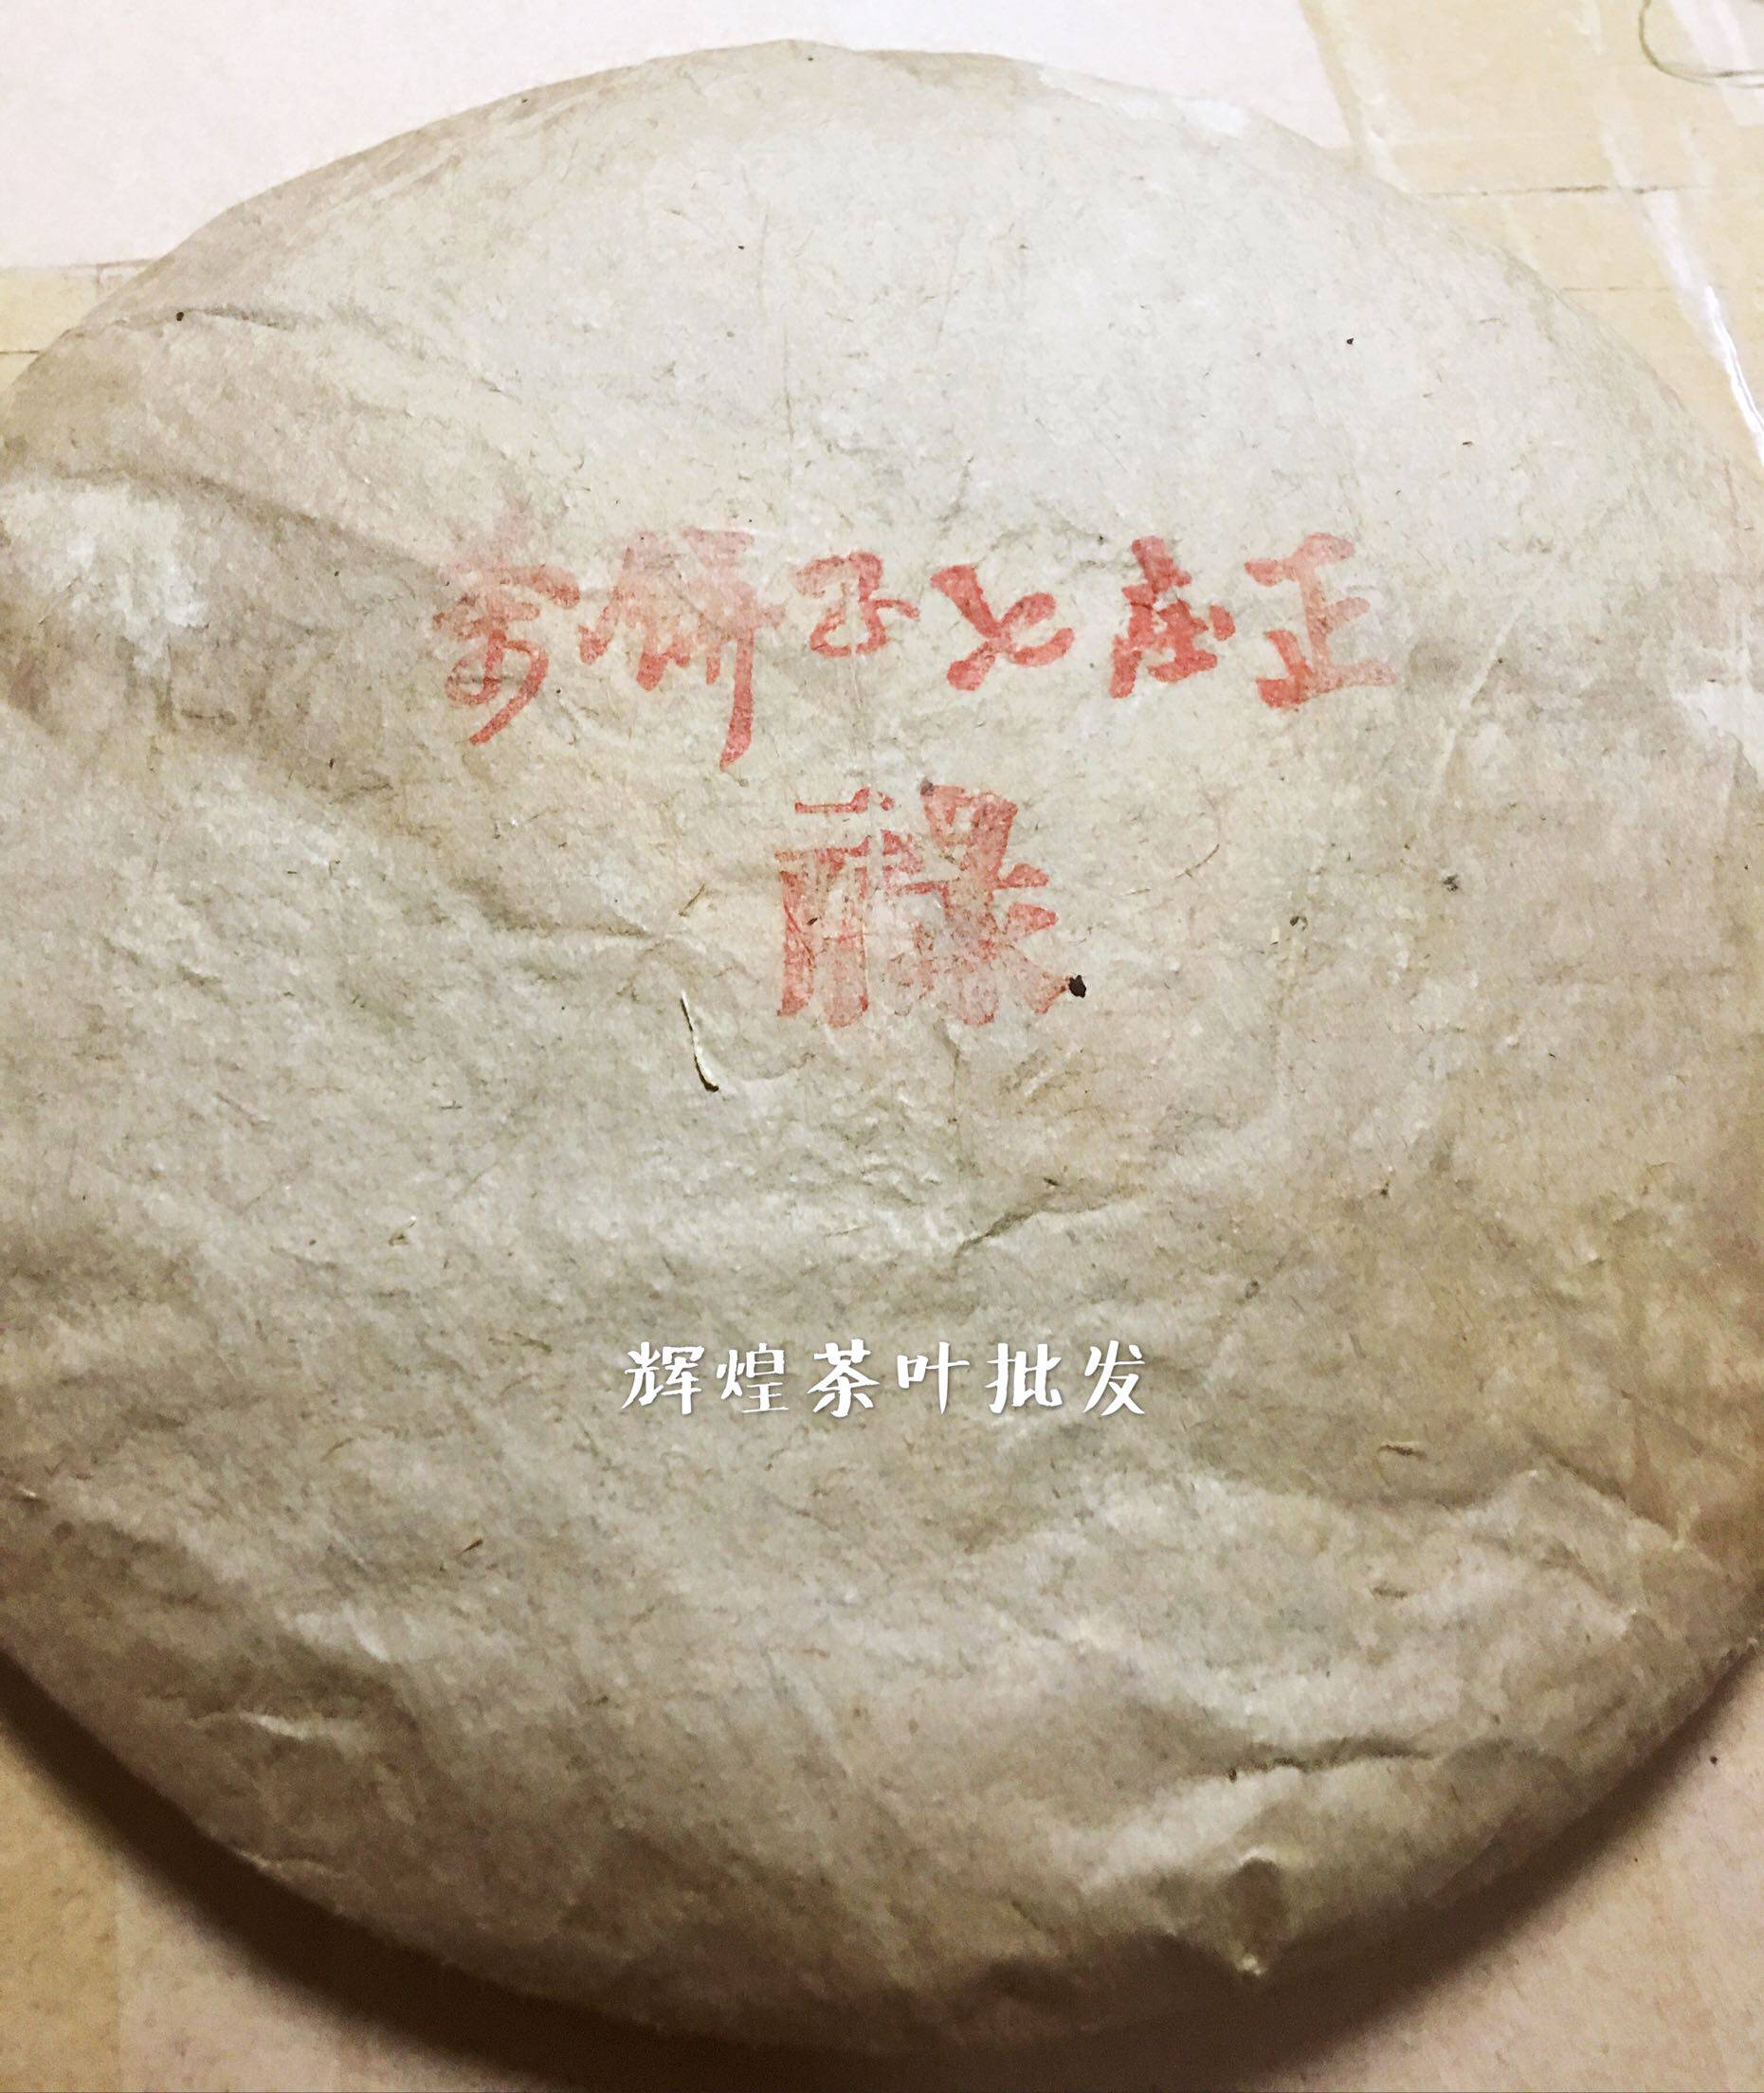 正庄七子餅茶
辉煌茶叶批发